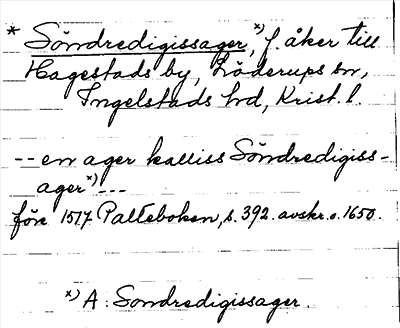 * Söndredigissager,ˣ⁾ f. åker till
Hagestads by, Löderups sn,
Ingelstads hd, Krist. l.
-- en ager kalliss Söndredigiss-
agerˣ⁾ ---
före 1517 Palteboken, s. 392. avskr. o. 1650.
ˣ⁾ A: Sondredigissager.